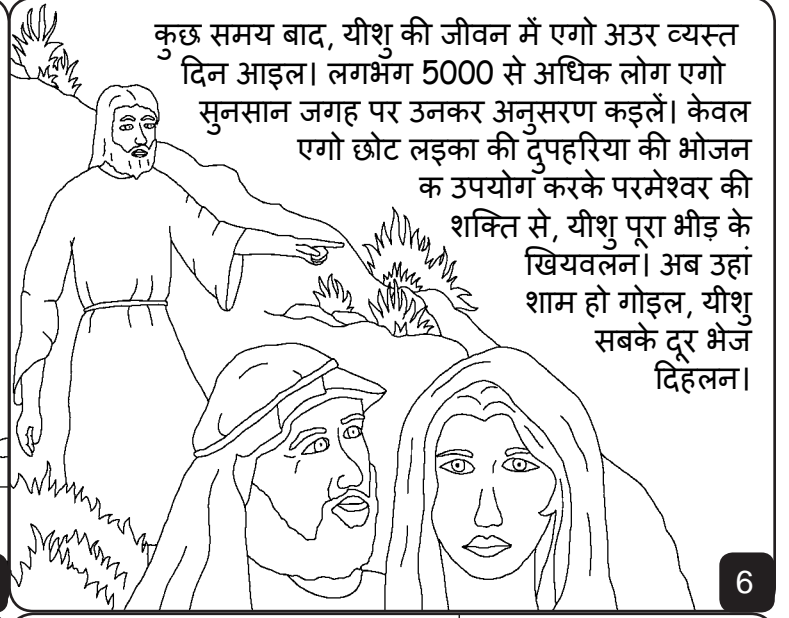 कुछ समय बाद, यीशु की जीवन में एगो अउर व्यस्त
दिन आइल। लगभग 5000 से अधिक लोग एगो
सुनसान जगह पर उनकर अनुसरण कइलें। केवल
एगो छोट लइका की दुपहरिया की भोजन
क उपयोग करके परमेश्वर की
शक्ति से, यीशु पूरा भीड़ के
खियवलन। अब उहां
शाम हो गोइल, यीशु
सबके दूर भेज
दिहलन।
6